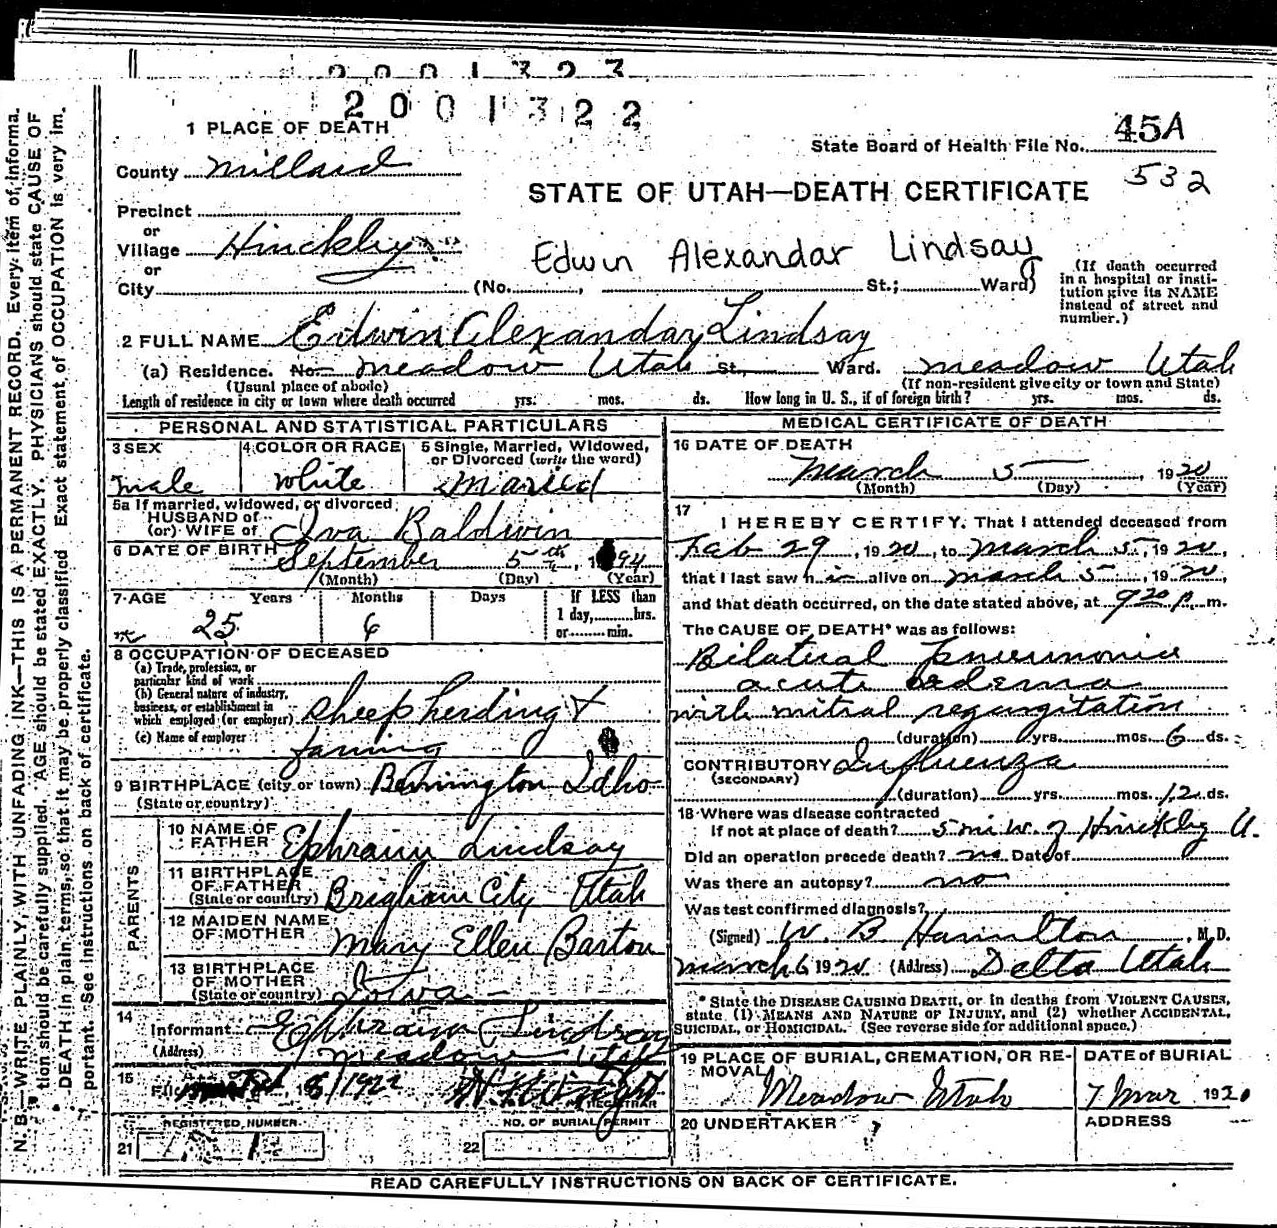 2001323
2001322
1 PLACE OF DEATH
State Board of Health File No. 45A
532
County Millard
STATE OF UTAH—DEATH CERTIFICATE
Precinct
or
Village Hinckley
or
City (No. , St.; Ward)
Edwin Alexandar Lindsay
(If death occurred in a hospital or institution give its NAME instead of street and number.)
2 FULL NAME Edwin Alexandar Lindsay
(a) Residence. No. Meadow Utah St., Ward. Meadow Utah
(Usual place of abode) (If non-resident give city or town and State)
Length of residence in city or town where death occurred yrs. mos. ds. How long in U. S., if of foreign birth? yrs. mos. ds.
PERSONAL AND STATISTICAL PARTICULARS
3 SEX 4 COLOR OR RACE 5 Single, Married, Widowed, or Divorced (write the word)
Male White Married
5a If married, widowed, or divorced
HUSBAND of
(or) WIFE of Iva Baldwin
6 DATE OF BIRTH September 5th, 1894
(Month) (Day) (Year)
7 AGE Years Months Days If LESS than
1 day, hrs.
or min.
25 6
8 OCCUPATION OF DECEASED
(a) Trade, profession, or
particular kind of work
(b) General nature of industry,
business, or establishment in
which employed (or employer) Sheep herding &
(c) Name of employer farming
9 BIRTHPLACE (city or town) Bennington Idho
(State or country)
PARENTS
10 NAME OF
FATHER Ephraim Lindsay
11 BIRTHPLACE
OF FATHER
(State or country) Brigham City Utah
12 MAIDEN NAME
OF MOTHER Mary Ellen Barton
13 BIRTHPLACE
OF MOTHER
(State or country) Iowa
14
Informant Ephraim Lindsay
(Address) Meadow Utah
15
REGISTRAR
REGISTERED NUMBER NO. OF BURIAL PERMIT
21 22
MEDICAL CERTIFICATE OF DEATH
16 DATE OF DEATH
March 5 1920
(Month) (Day) (Year)
17
I HEREBY CERTIFY. That I attended deceased from
Feb 29, 1920, to March 5, 1920,
that I last saw him alive on March 5, 1920,
and that death occurred, on the date stated above, at 920 p. m.
The CAUSE OF DEATH* was as follows:
Bilateral Pneumonia
acute oedema
with mitral regurgitation
(duration) yrs. mos. 6 ds.
CONTRIBUTORY Influenza
(SECONDARY)
(duration) yrs. mos. 12 ds.
18 Where was disease contracted
If not at place of death? 5 mi W. of Hinckley U.
Did an operation precede death? no Date of
Was there an autopsy? no
Was test confirmed diagnosis?
(Signed) W. B Hamilton, M. D.
March 6 1920 (Address) Delta Utah
* State the DISEASE CAUSING DEATH, or in deaths from VIOLENT CAUSES,
state (1) MEANS AND NATURE OF INJURY, and (2) whether ACCIDENTAL,
SUICIDAL, or HOMICIDAL. (See reverse side for additional space.)
19 PLACE OF BURIAL, CREMATION, OR REMOVAL DATE of BURIAL
Meadow Utah 7 Mar 1920
20 UNDERTAKER ADDRESS
READ CAREFULLY INSTRUCTIONS ON BACK OF CERTIFICATE.
N. B.—WRITE PLAINLY, WITH UNFADING INK—THIS IS A PERMANENT RECORD. Every item of informa-
tion should be carefully supplied. AGE should be stated EXACTLY. PHYSICIANS should state CAUSE OF
DEATH in plain terms, so that it may be properly classified. Exact statement of OCCUPATION is very im-
portant. See instructions on back of certificate.